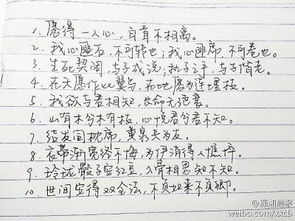 1. 愿得一人心，白首不相离。
2. 我心匪石，不可转也；我心匪席，不可卷也。
3. 生死契阔，与子成说；执子之手，与子偕老。
4. 在天愿作比翼鸟，在地愿为连理枝。
5. 我欲与君相知，长命无绝衰。
6. 山有木兮木有枝，心悦君兮君不知。
7. 结发同枕席，黄泉共为友。
8. 衣带渐宽终不悔，为伊消得人憔悴。
9. 玲珑骰子安红豆，入骨相思知不知。
10. 世间安得双全法，不负如来不负卿。
weibo.com